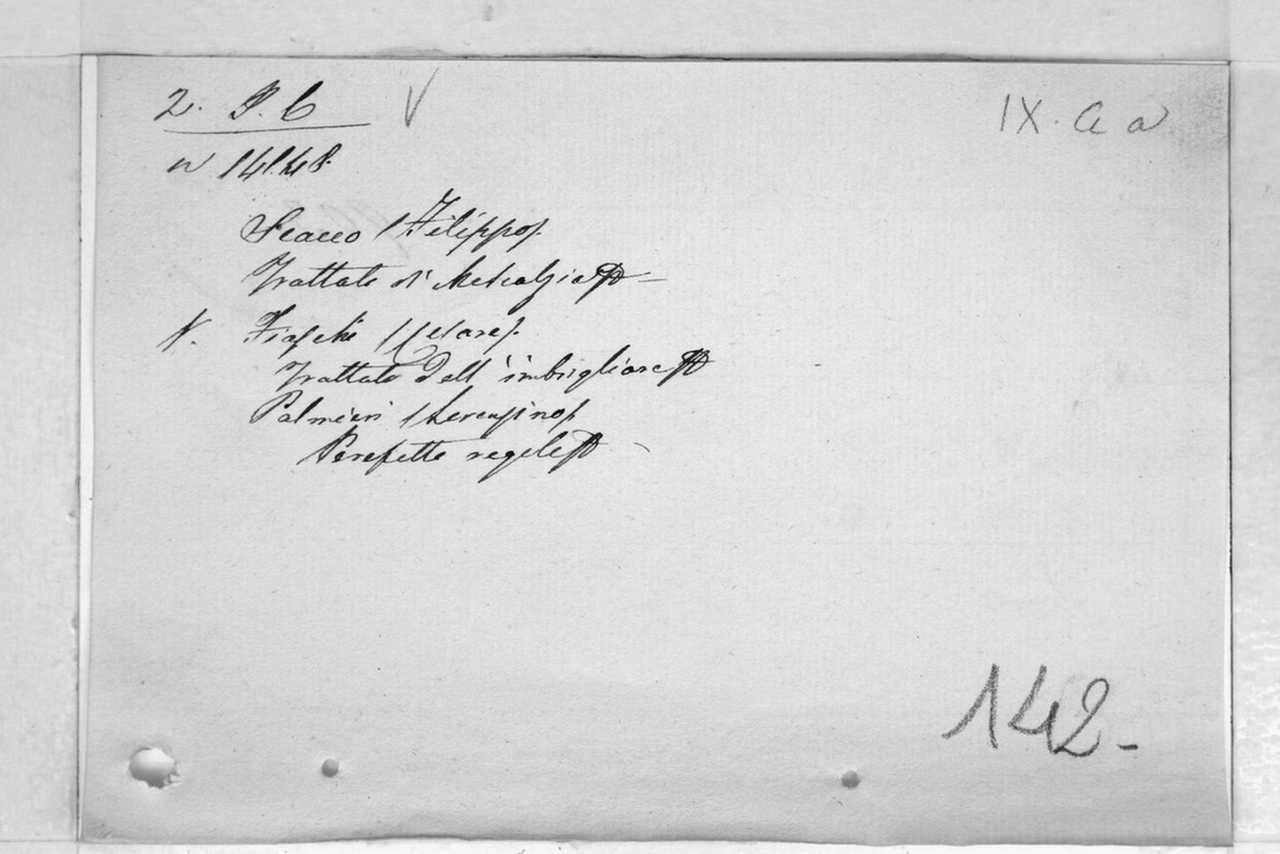 2. P. 6 V
IX. a a
N 14148.
Scacco /Filippo/.
Trattato di Mescalzia
N. Fiaschi /Cesare/.
Trattato dell'imbrigliare
Palmieri /Lorenzino/
Perfette regole
142-